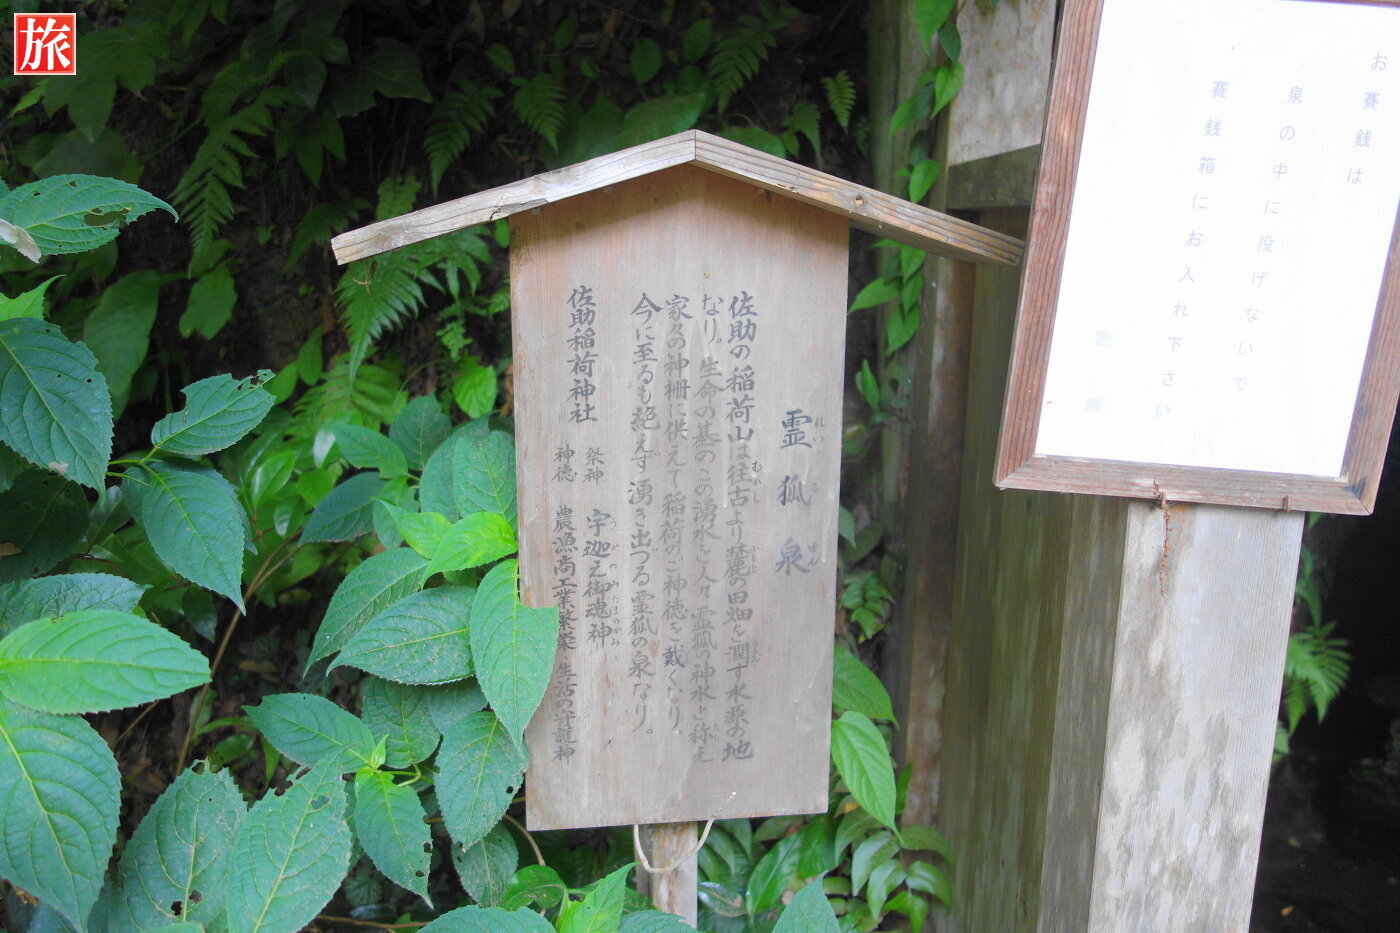 旅
お賽銭は
泉の中に投げないで
賽銭箱にお入れ下さい
宮司
霊狐泉
れいこせん
佐助の稲荷山は往古より麓の田畑を潤す水源の地
むかし
ふもと
うるお
なり。生命の基のこの湧水を人々霊狐の神水と称え
家々の神棚に供えて稲荷のご神徳を戴くなり。
今に至るも絶えず湧き出づる霊狐の泉なり。
佐助稲荷神社
祭神 宇迦之御魂神
うかのみたまのかみ
神徳 農漁商工業繁栄・生活の守護神